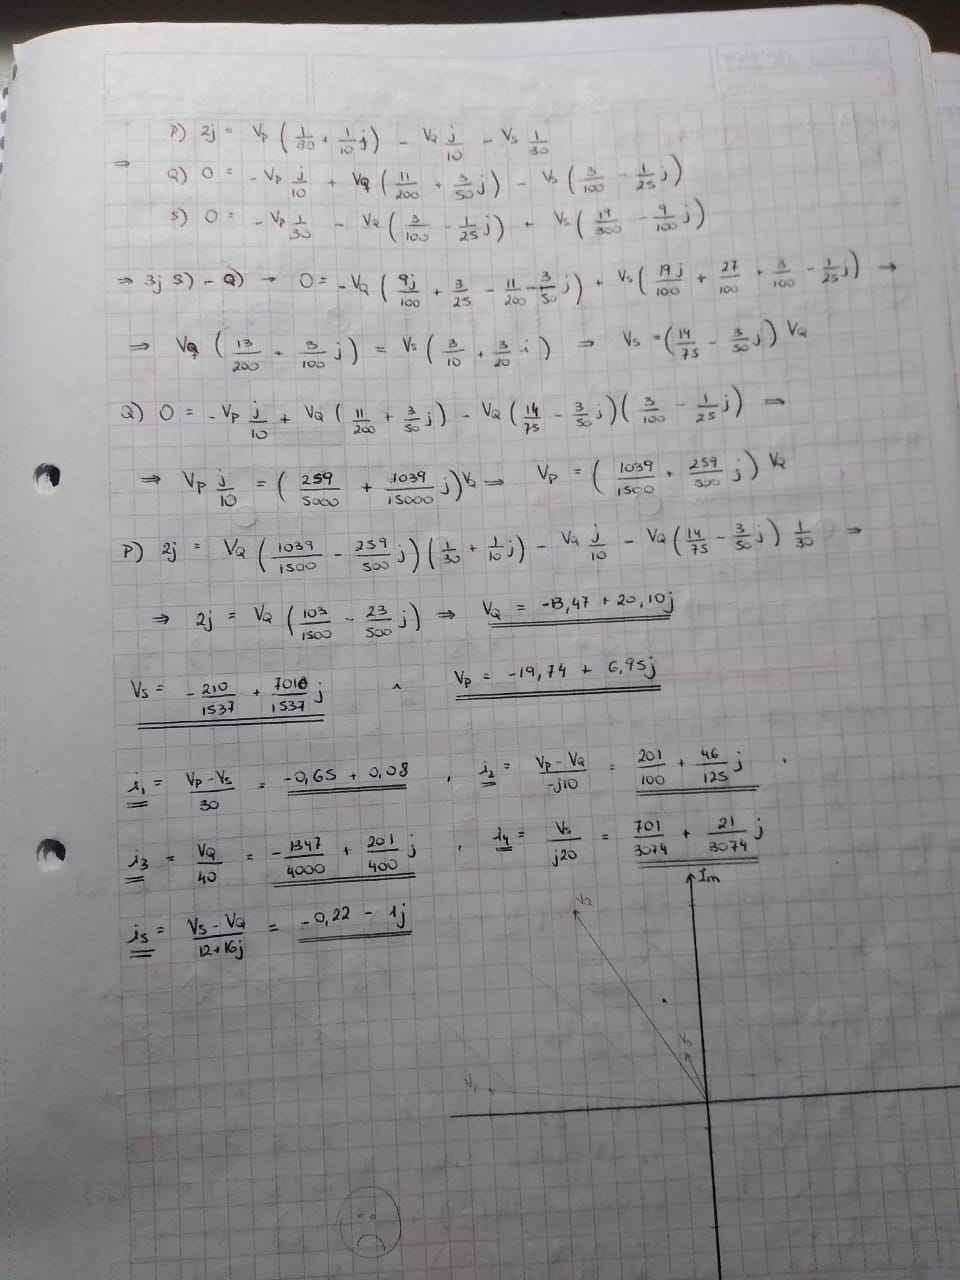 P) 2j = Vp (1/30 + 1/10 j) - VQ j/10 - Vs 1/30
⇒
Q) 0 = - Vp j/10 + VQ (11/200 + 3/50 j) - Vs (3/100 - 1/25 j)
S) 0 = - Vp 1/30 - VQ (3/100 - 1/25 j) + Vs (19/300 - 9/100 j)
⇒ 3j S) - Q) → 0 = - VQ (9j/100 + 3/25 - 11/200 - 3/50 j) + Vs (19j/100 + 27/100 + 3/100 - 1/25 j) →
⇒ VQ (13/200 + 3/100 j) = Vs (3/10 + 3/20 i) ⇒ Vs = (14/75 - 3/50 j) VQ
Q) 0 = - Vp j/10 + VQ (11/200 + 3/50 j) - VQ (14/75 - 3/50 j) (3/100 - 1/25 j) ⇒
⇒ Vp j/10 = (259/5000 + 1039/15000 j) VQ → Vp = (1039/1500 + 259/500 j) VQ
P) 2j = VQ (1039/1500 - 259/500 j) (1/30 + 1/10 j) - VQ j/10 - VQ (14/75 - 3/50 j) 1/30 ⇒
⇒ 2j = VQ (103/1500 - 23/500 j) ⇒ VQ = -13,47 + 20,10j
Vs = - 210/1537 + 7010/1537 j ^ Vp = -19,74 + 6,95j
i1 = Vp - Vs/30 = -0,65 + 0,08 , i2 = Vp - VQ/-j10 = 201/100 + 46/125 j .
i3 = VQ/40 = - 1347/4000 + 201/400 j , i4 = Vs/j20 = 701/3074 + 21/3074 j
i5 = Vs - VQ/12+16j = -0,22 - 1j
Im
VQ
Vs
Vp